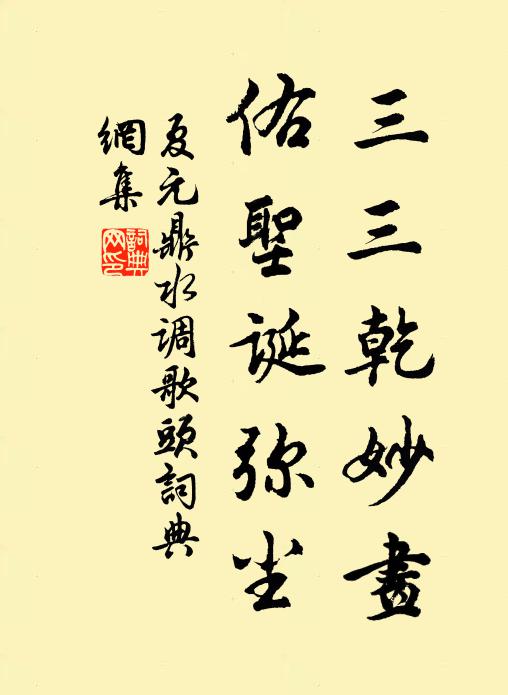 三三乾妙畫
佑聖誕弥尘
夏元鼎水调歌頭詞典
網集
詞典網印